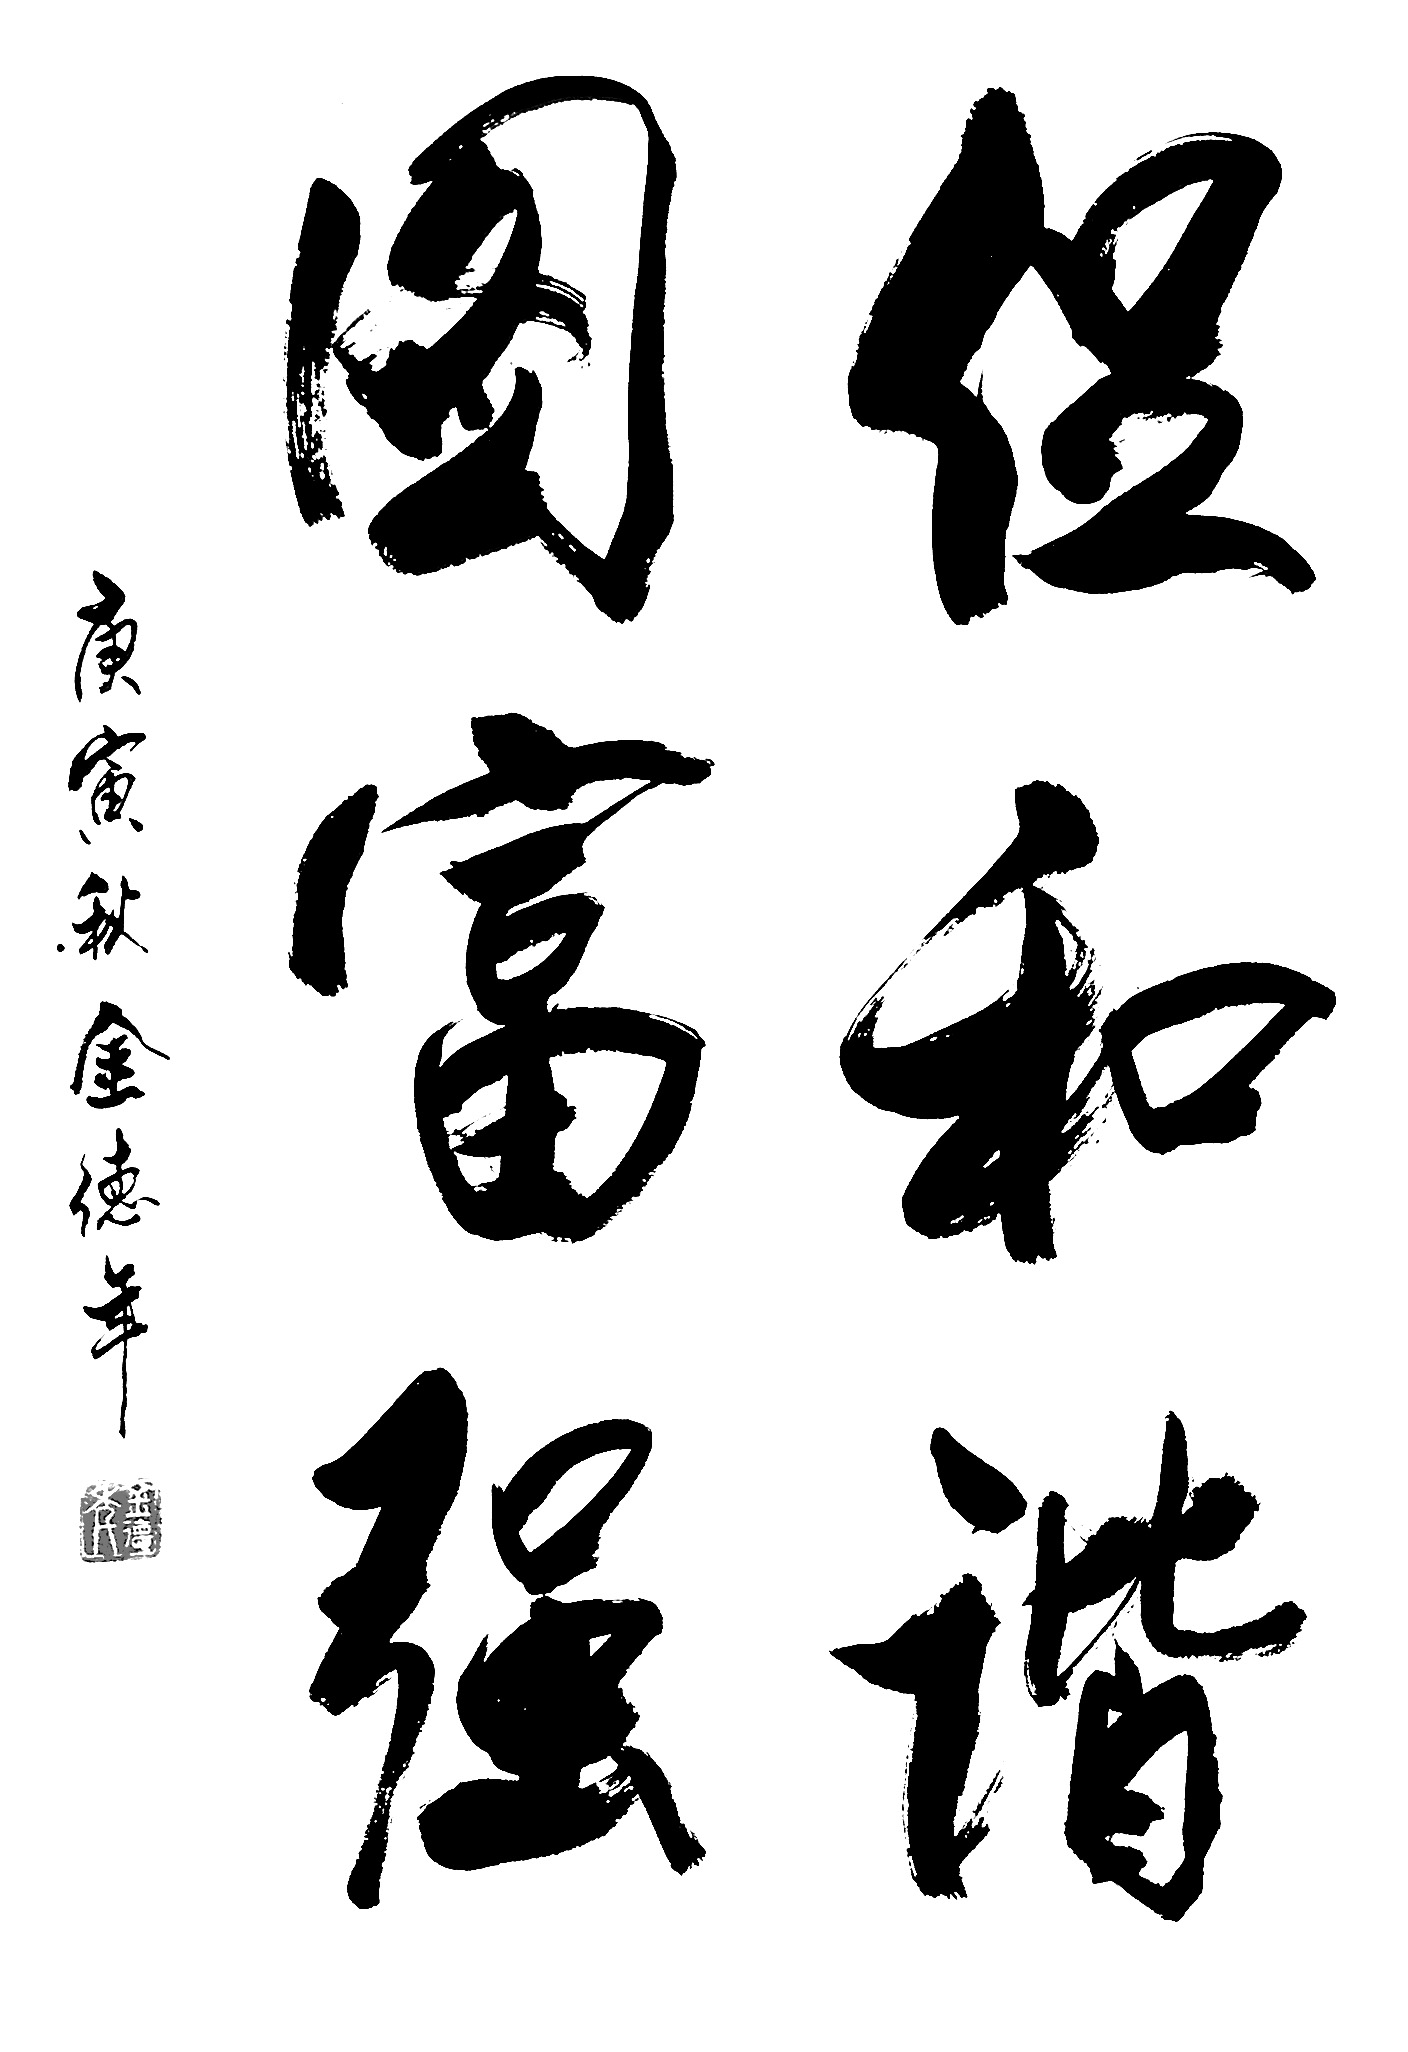 促和谐
图富强
庚寅秋 金德年